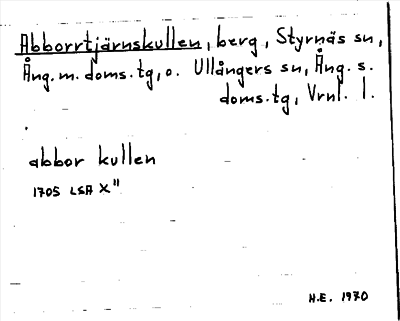 Abborrtjärnskullen, berg, Styrnäs sn,
Ång. m. doms.tg, o. Ullångers sn, Ång. s.
doms.tg, Vrnl. l.
abbor kullen
1705 LSA X"
H.E. 1970